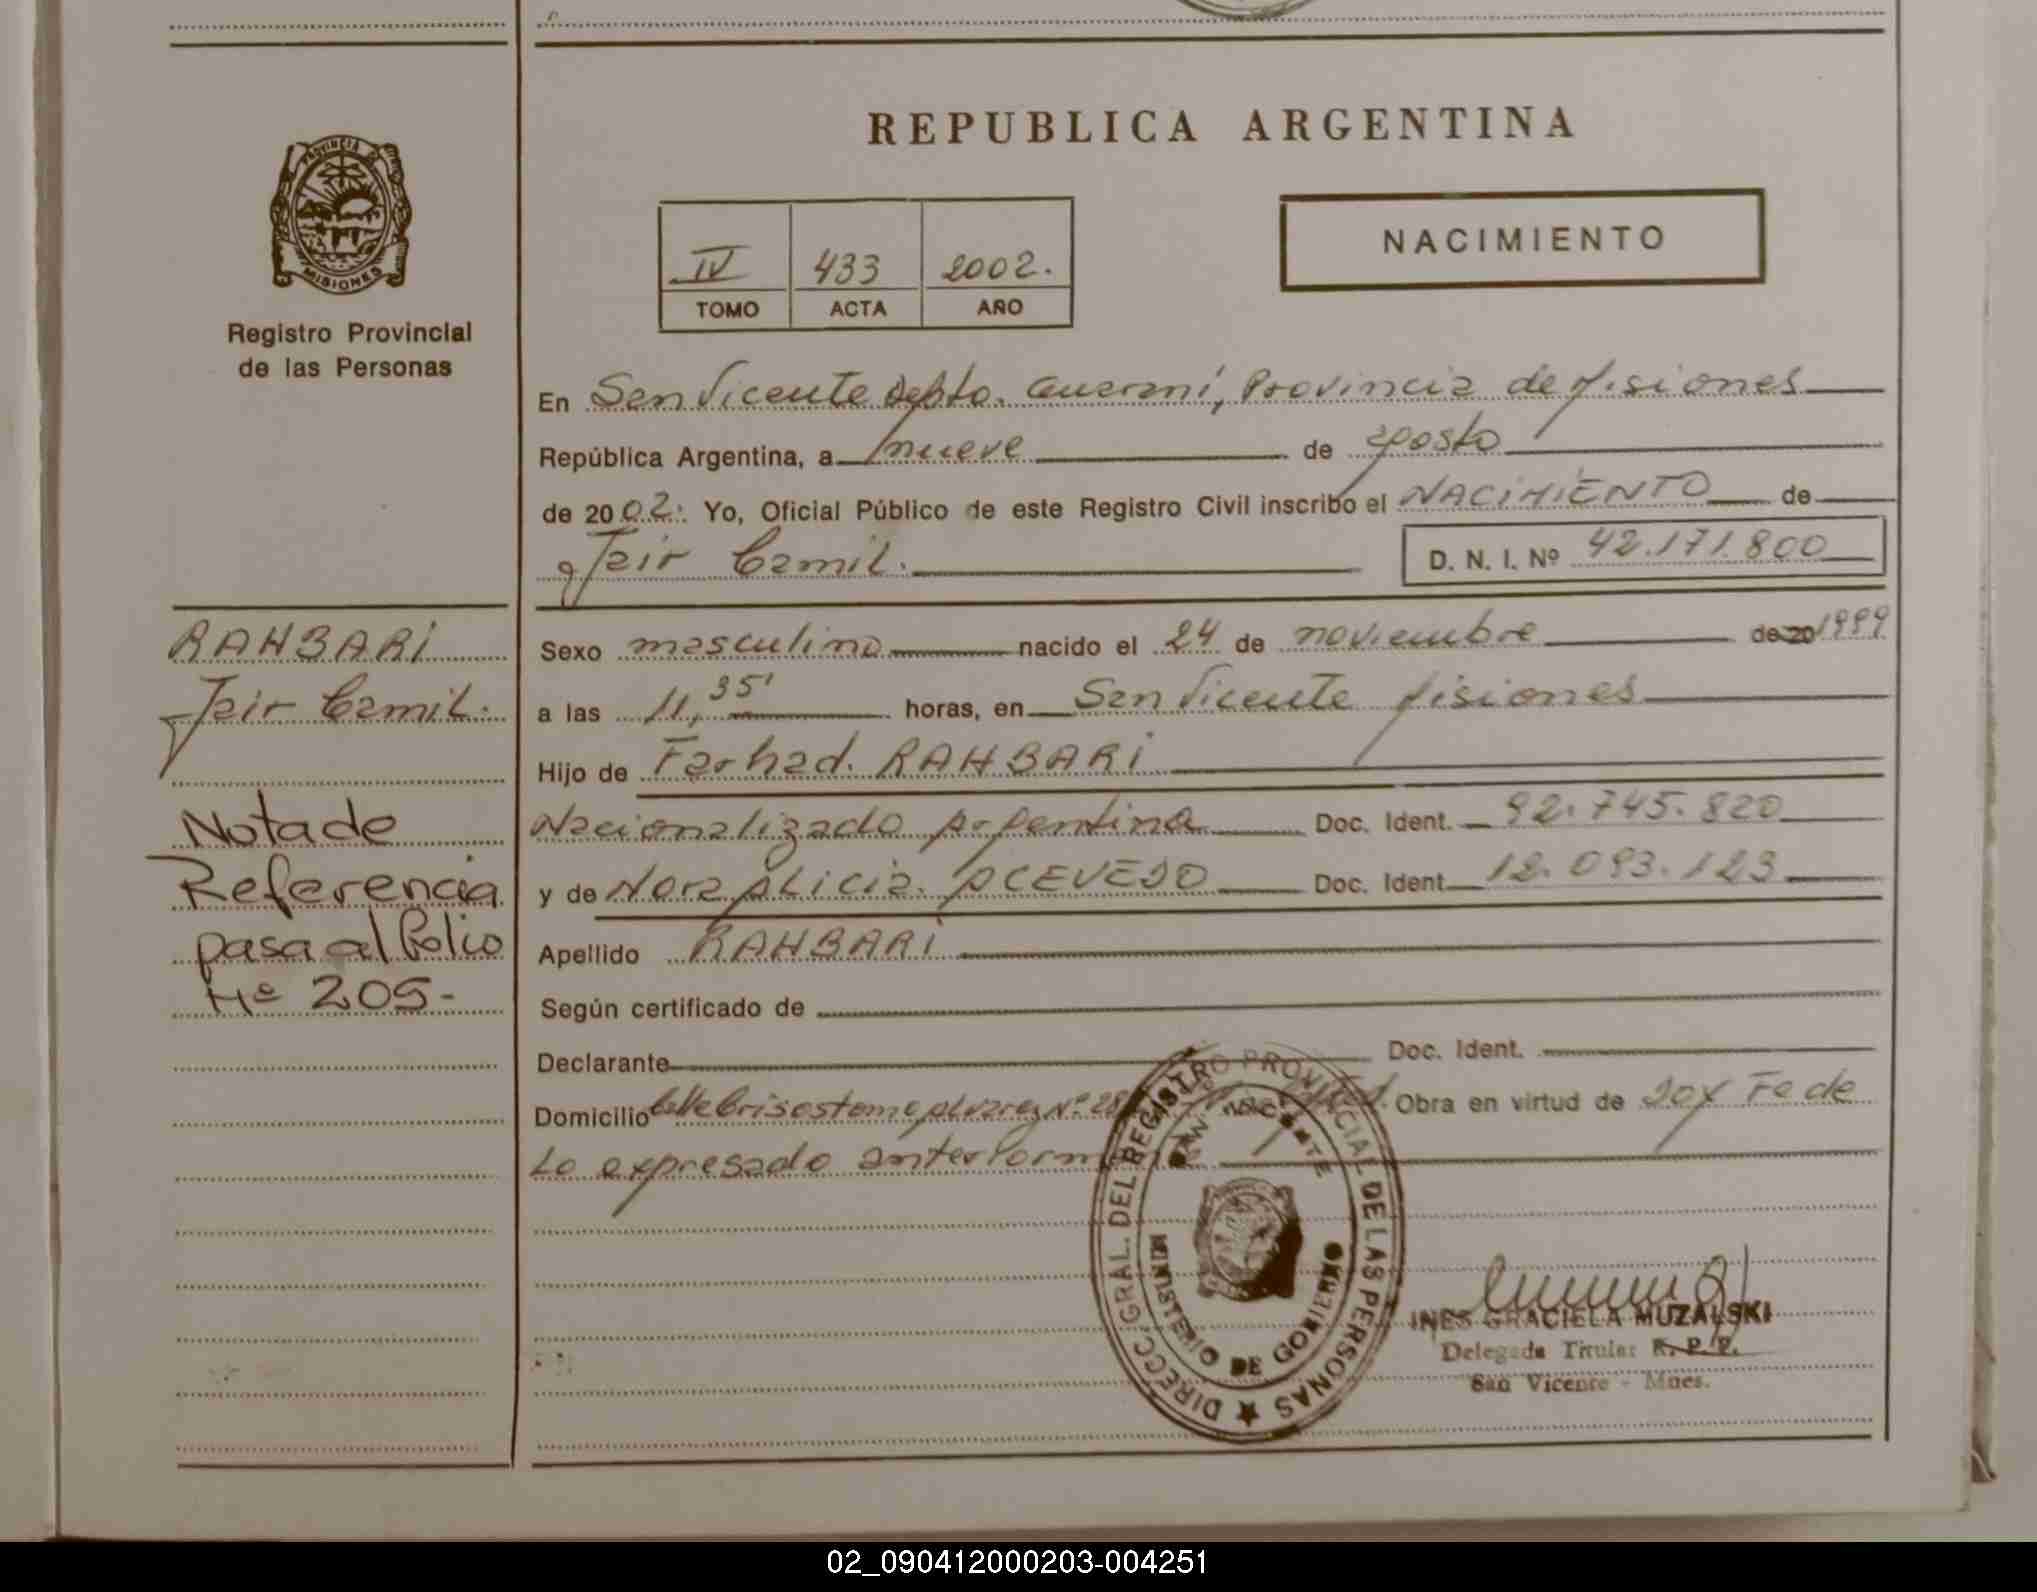 REPUBLICA ARGENTINA
PROVINCIA DE
MISIONES
Registro Provincial
de las Personas
IV 433 2002.
TOMO ACTA AÑO
NACIMIENTO
En San Vicente Depto. Guaraní, Provincia de Misiones
República Argentina, a nueve de agosto
de 2002. Yo, Oficial Público de este Registro Civil inscribo el NACIMIENTO de
Jair Camil. D. N. I. Nº 42.171.800
RAHBARI
Jair Camil.
Sexo masculino nacido el 24 de noviembre de 20 1999
a las 11,35' horas, en San Vicente Misiones
Hijo de Farhad. RAHBARI
Nacionalizado Argentina Doc. Ident. 92.745.820
y de Nora Alicia. ACEVEDO Doc. Ident. 12.093.123
Apellido RAHBARI
Según certificado de
Declarante Doc. Ident.
Domicilio Calle Crisostomo Alvarez Nº 28 Obra en virtud de Dox Fe de
Lo expresado
Nota de
Referencia
pasa al Folio
Nº 205-
DIRECC. GRAL. DEL REGISTRO PROVINCIAL DE LAS PERSONAS
SAN VICENTE
MINISTERIO DE GOBIERNO
INES GRACIELA MUZALSKI
Delegada Titular R. P. P.
San Vicente - Mnes.
02_090412000203-004251